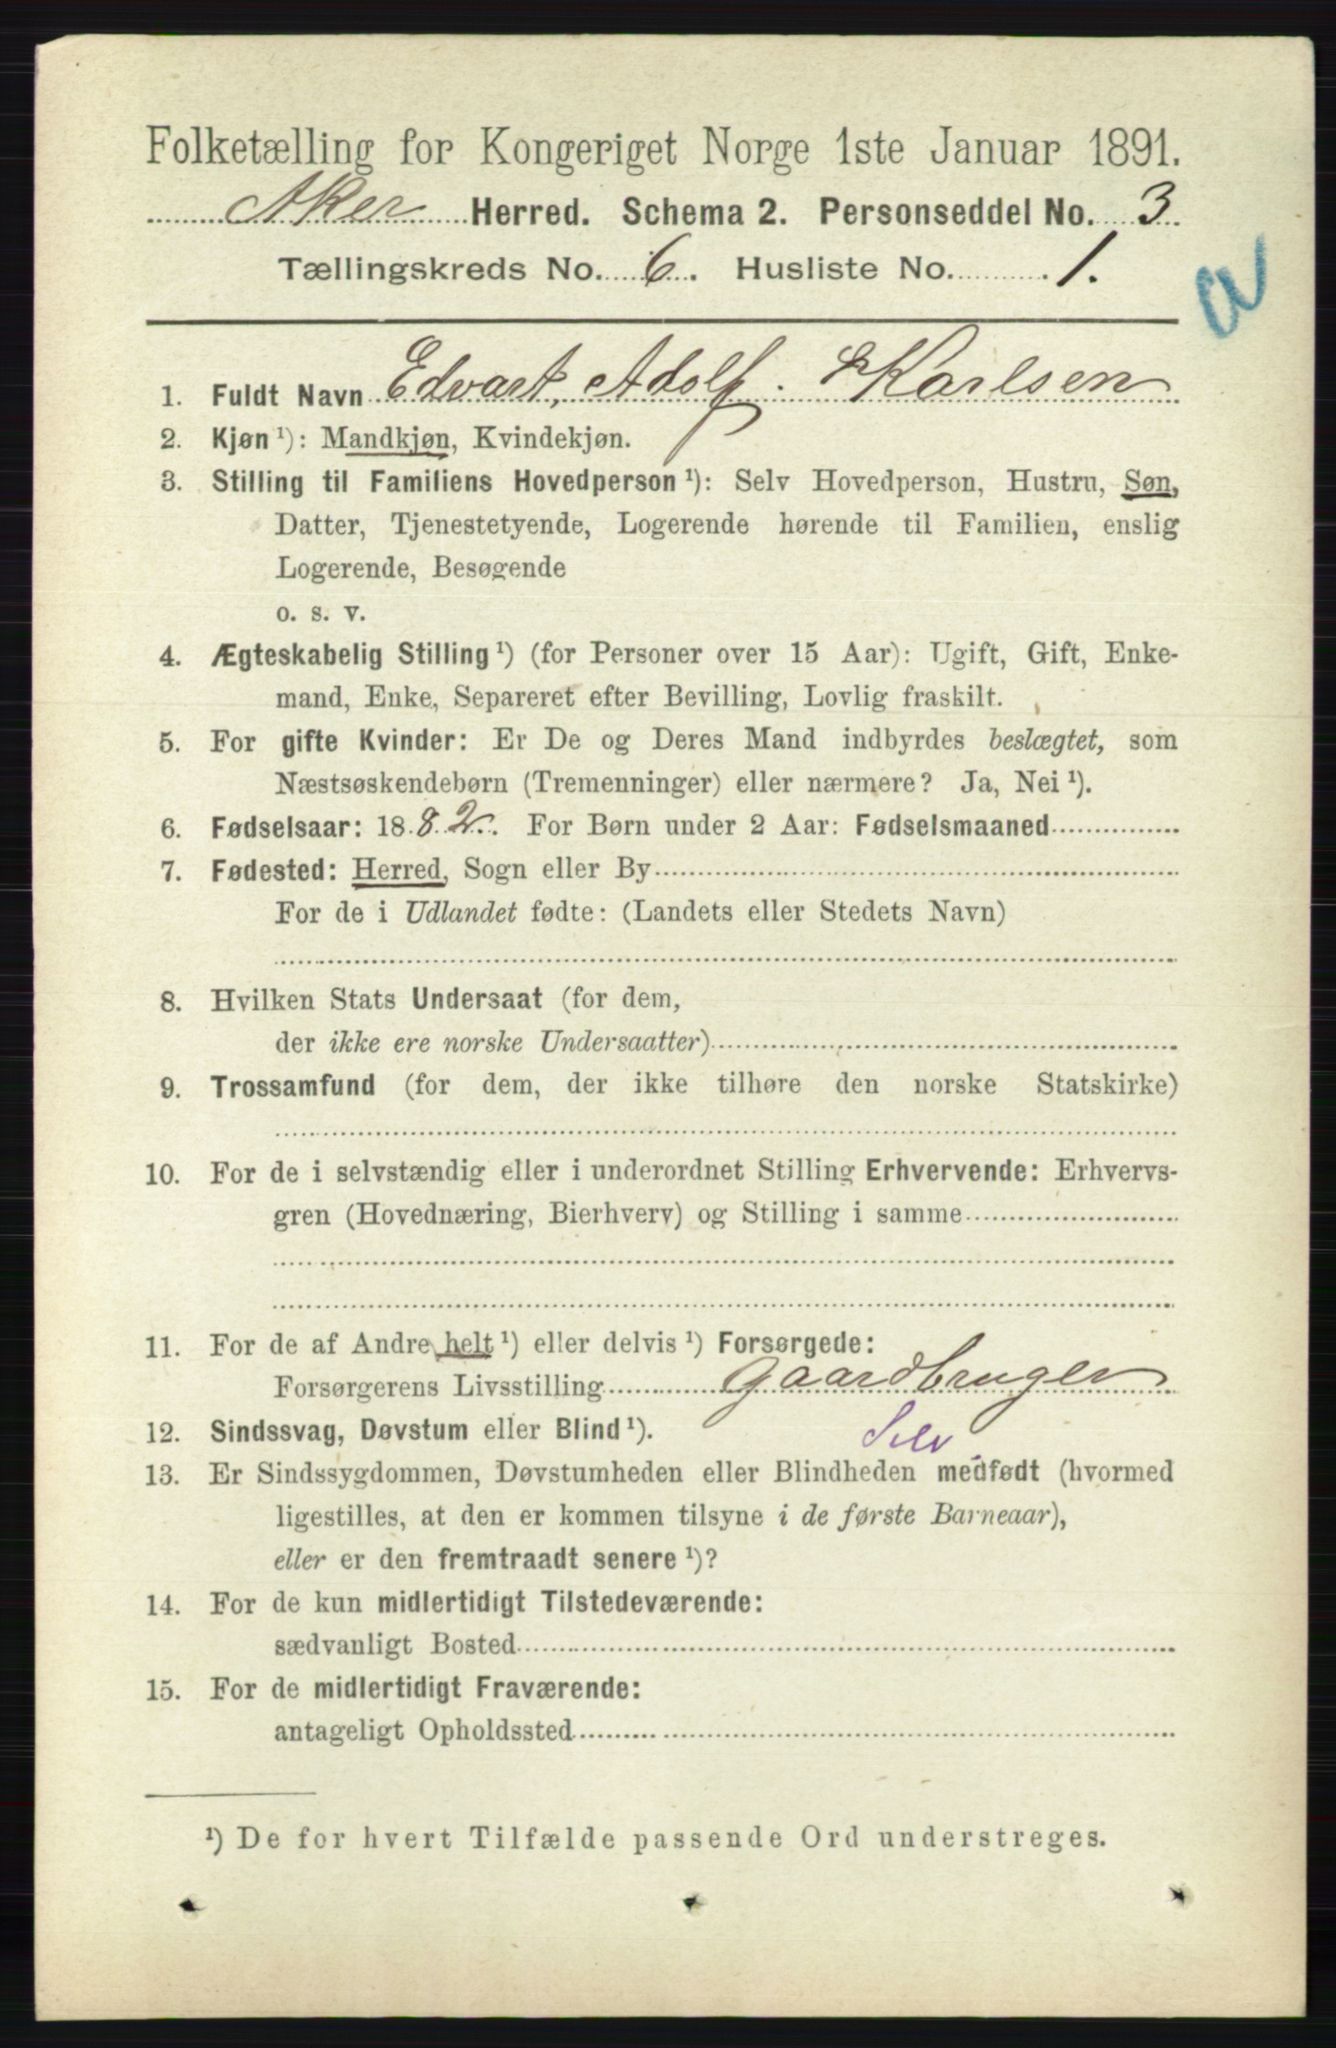 Folketælling for Kongeriget Norge 1ste Januar 1891.
Aker Herred. Schema 2. Personseddel No. 3
Tællingskreds No. 6. Husliste No. 1.
a
1. Fuldt Navn Edvart, Adolf. Karlsen
2. Kjøn ¹): Mandkjøn, Kvindekjøn.
3. Stilling til Familiens Hovedperson ¹): Selv Hovedperson, Hustru, Søn,
Datter, Tjenestetyende, Logerende hørende til Familien, enslig
Logerende, Besøgende
o. s. v.
4. Ægteskabelig Stilling ¹) (for Personer over 15 Aar): Ugift, Gift, Enke-
mand, Enke, Separeret efter Bevilling, Lovlig fraskilt.
5. For gifte Kvinder: Er De og Deres Mand indbyrdes beslægtet, som
Næstsøskendebørn (Tremenninger) eller nærmere? Ja, Nei ¹).
6. Fødselsaar: 1882. For Børn under 2 Aar: Fødselsmaaned
7. Fødested: Herred, Sogn eller By
For de i Udlandet fødte: (Landets eller Stedets Navn)
8. Hvilken Stats Undersaat (for dem,
der ikke ere norske Undersaatter)
9. Trossamfund (for dem, der ikke tilhøre den norske Statskirke)
10. For de i selvstændig eller i underordnet Stilling Erhvervende: Erhvervs-
gren (Hovednæring, Bierhverv) og Stilling i samme
11. For de af Andre helt ¹) eller delvis ¹) Forsørgede:
Forsørgerens Livsstilling Gaardbruger
12. Sindssvag, Døvstum eller Blind ¹). Selv
13. Er Sindssygdommen, Døvstumheden eller Blindheden medfødt (hvormed
ligestilles, at den er kommen tilsyne i de første Barneaar),
eller er den fremtraadt senere ¹)?
14. For de kun midlertidigt Tilstedeværende:
sædvanligt Bosted
15. For de midlertidigt Fraværende:
antageligt Opholdssted
¹) De for hvert Tilfælde passende Ord understreges.